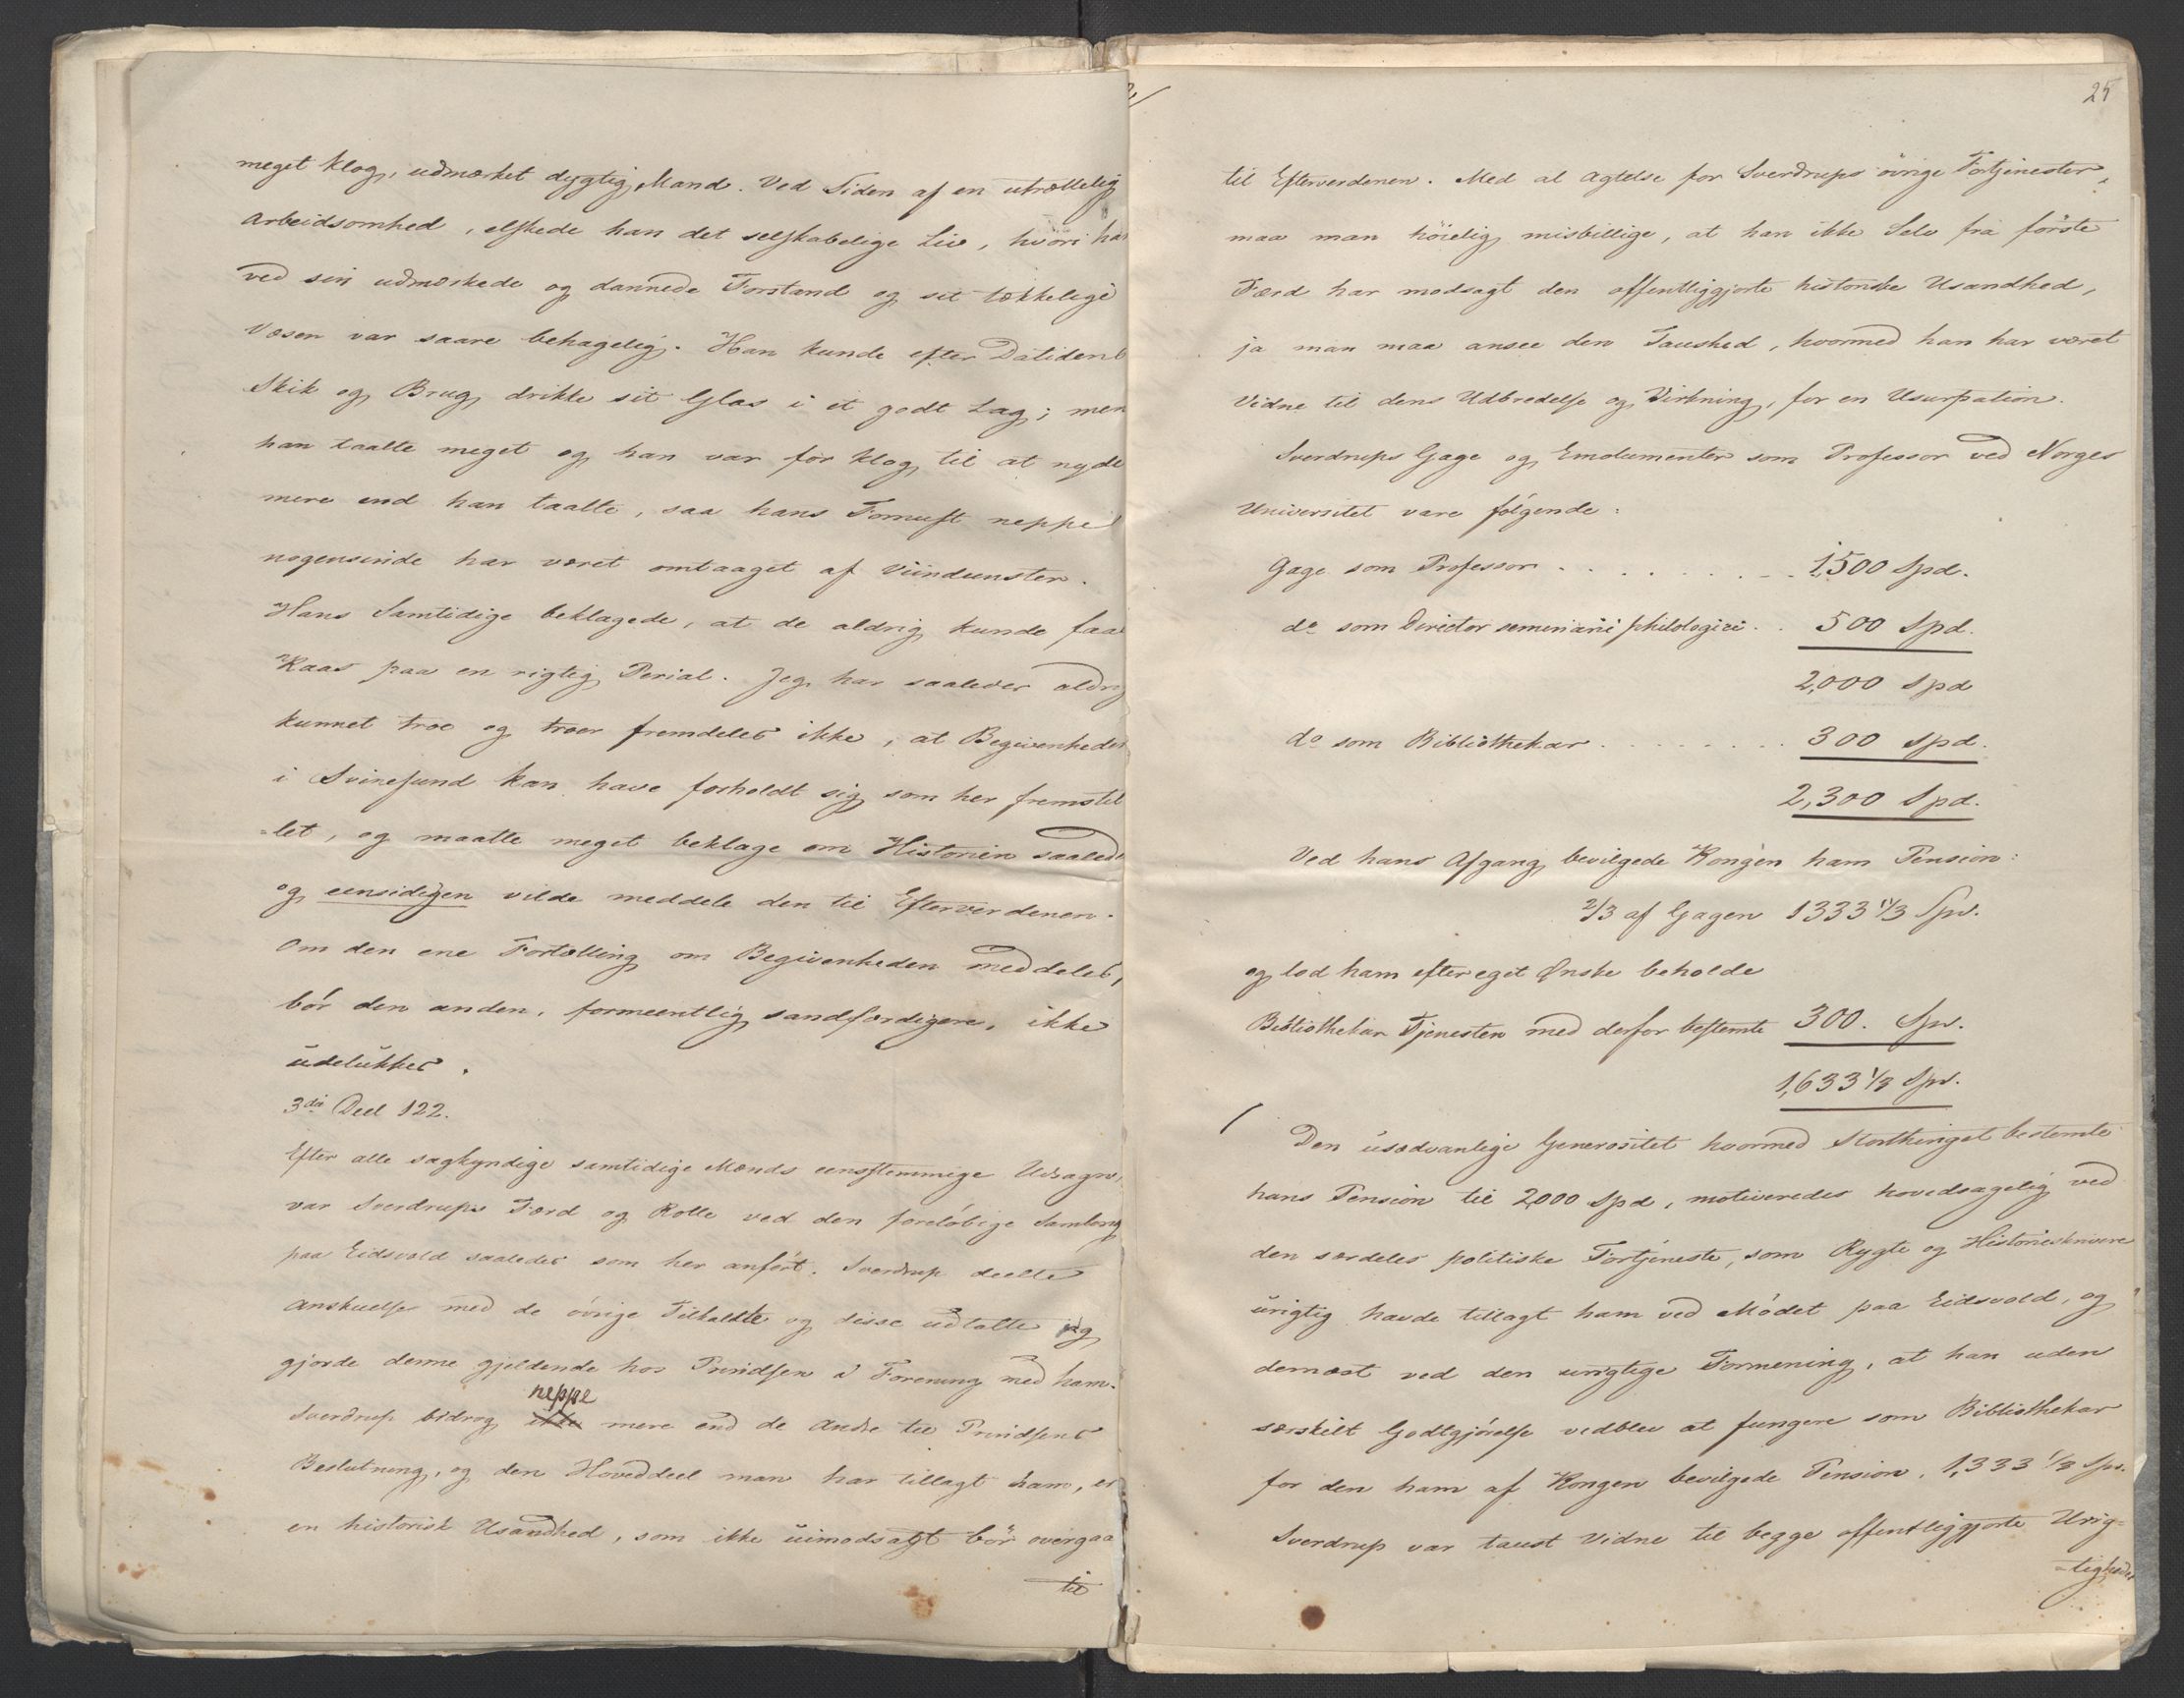 meget klog, udmærket dygtig Mand. Ved Siden af en utrættelig
Arbeidsomhed, elskede han det selskabelige Liv, hvori ha
ved sin udmærkede og dannede Forstand og sit tækkelige
Væsen var saare behagelig. Han kunde efter Datidens
Skik og Brug, drikke sit Glas i et godt Lag; men
han taalte meget og han var for klog til at nyde
mere end han taalte, saa hans Fornuft neppe
nogensinde har været omtaaget af Viindunster.
Hans Samtidige beklagede, at de aldrig kunde faa
Kaas paa en rigtig Perial. Jeg har saaledes aldrig
kunnet troe og troer fremdeles ikke, at Begivenheden
i Svinesund kan have forholdt sig som her fremstil
-let, og maatte meget beklage om Historien saaled
og eensidigen vilde meddele den til Efterverdenen.
Om den ene Fortælling om Begivenheden meddeles,
bör den anden, formeentlig sandfærdigere, ikke
udelukkes.
3die Deel 122.
Efter alle sagkyndige samtidige Mænds eensstemmige Udsagn,
var Sverdrups Færd og Rolle ved den foreløbige Samling
paa Eidsvold saaledes som her anfört. Sverdrup deelte
Anskuelse med de övrige Tilkaldte og disse udtalte og
gjorde denne gjeldende hos Prindsen i Forening med ham.
neppe
Sverdrup bidrog ikke mere end de Andre til Prindsens
Beslutning, og den Hoveddeel man har tillagt ham, er
en historisk Usandhed, som ikke uimodsagt bör overgaa
til
25
til Efterverdenen. Med al Agtelse for Sverdrups övrige Fortjenester,
maa man höielig misbillige, at han ikke Selv fra förste
Færd har modsagt den offentliggjorte historiske Usandhed,
ja man maa ansee den Taushed, hvormed han har været
Vidne til dens Udbredelse og Virkning, for en Usurpation.
Sverdrups Gage og Emolumenter som Professor ved Norges
Universitet vare fölgende:
Gage som Professor . . . . . . . 1,500 Spd.
do som Director seminarii philologici . . 500 Spd.
2,000 Spd
do som Bibliothekar . . . . . . . . 300 Spd.
2,300 Spd.
Ved hans Afgang bevilgede Kongen ham Pension:
2/3 af Gagen 1333 1/3 Spd.
og lod ham efter eget Ønske beholde
Bibliothekar Tjenesten med derfor bestemte 300. Spd.
1,633 1/3 Spd.
/ Den usædvanlige Generositet hvormed Storthinget bestemte
hans Pension til 2000 Spd, motiveredes hovedsagelig ved
den særdeles politiske Fortjeneste, som Rygte og Historieskrivere
urigtig havde tillagt ham ved Mödet paa Eidsvold, og
dernæst ved den urigtige Formening, at han uden
særskilt Godtgjörelse vedblev at fungere som Bibliothekar
for den ham af Kongen bevilgede Pension, 1,333 1/3 Spd.
Sverdrup var taust Vidne til begge offentliggjorte Urig-
-tigheder